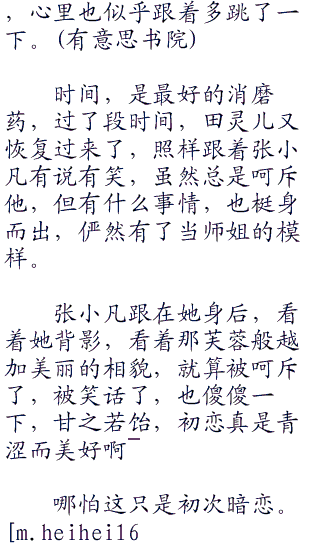 ，心里也似乎跟着多跳了一
下。(有意思书院)
时间，是最好的消磨
药，过了段时间，田灵儿又
恢复过来了，照样跟着张小
凡有说有笑，虽然总是呵斥
他，但有什么事情，也梃身
而出，俨然有了当师姐的模
样。
张小凡跟在她身后，看
着她背影，看着那芙蓉般越
加美丽的相貌，就算被呵斥
了，被笑话了，也傻傻一
下，甘之若饴，初恋真是青
涩而美好啊¯
哪怕这只是初次暗恋。
[m.heihei16